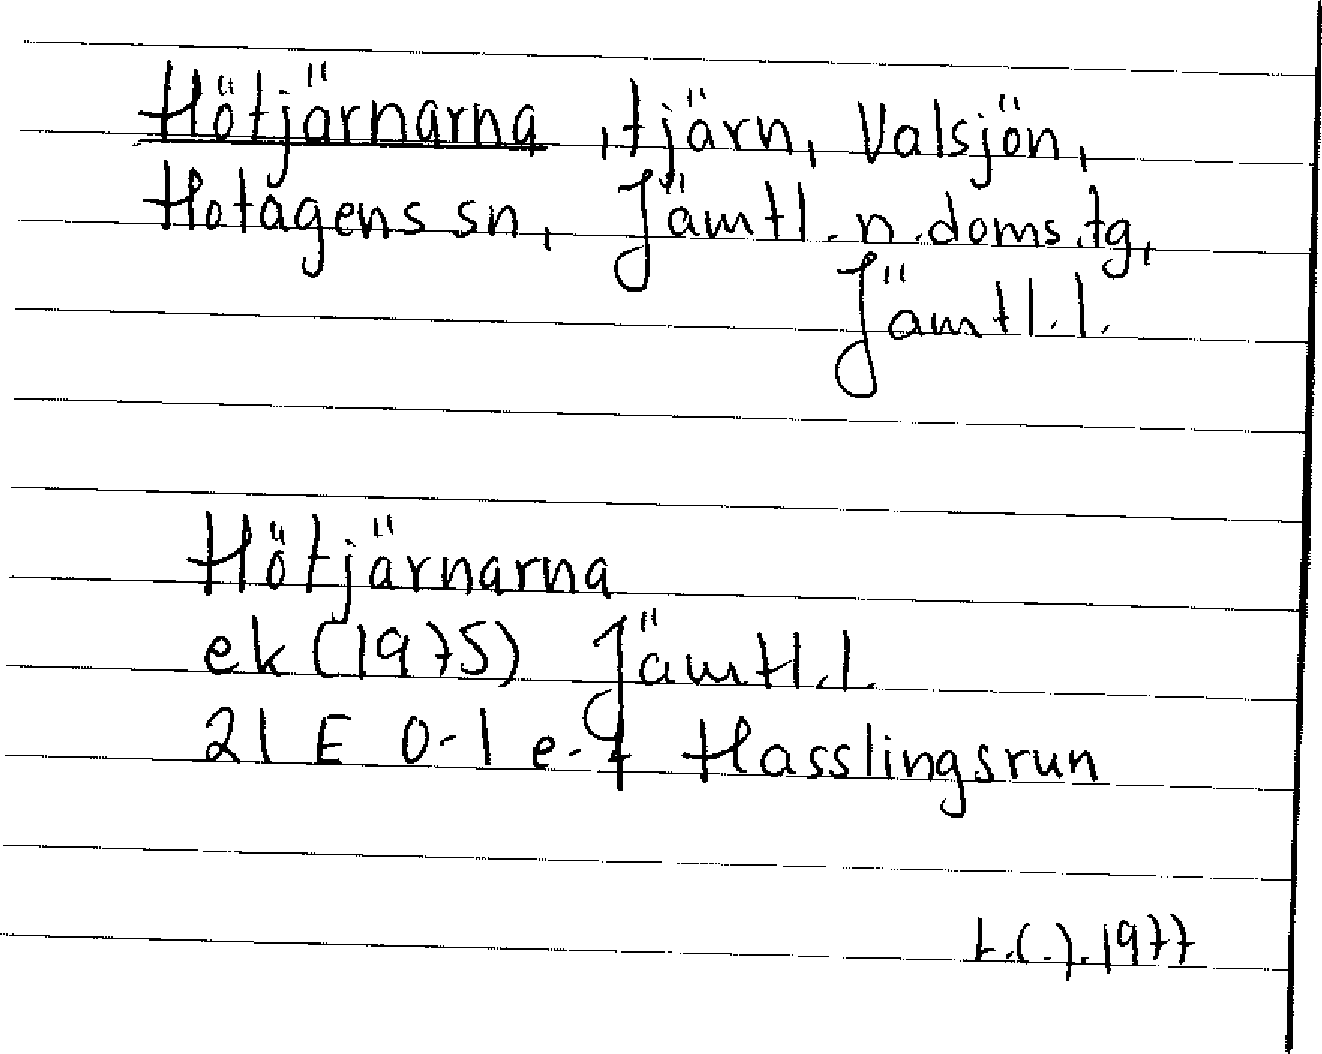 Hötjärnarna, tjärn, Valsjön,
Hotagens sn, Jämtl. n. doms.tg,
Jämtl. l.
Hötjärnarna
ek (1975) Jämtl. l.
21 E 0-1 e-f Hasslingsrun
t.(.).1977